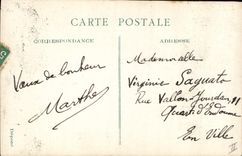 CARTE POSTALE
CORRESPONDANCE
ADRESSE
Vœux de bonheur
Marthe
Mademoiselle
Virginie Saguato
Rue Vallon Jourdan, 91
Quartier d'Endoume
En Ville